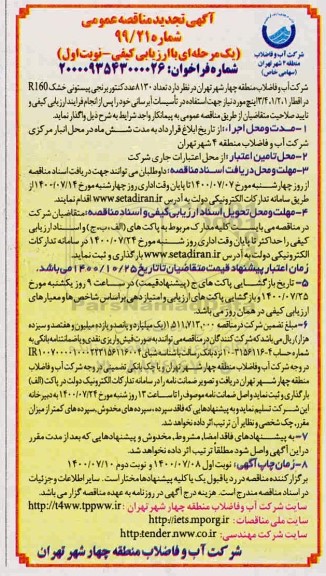 آگهی تجدید مناقصه عمومی
شماره ۹۹/۲۱
(یک مرحله‌ای با ارزیابی کیفی - نوبت اول)
شماره فراخوان: ۲۰۰۰۰۹۳۵۴۳۰۰۰۰۲۶
شرکت آب و فاضلاب
منطقه ۴ شهر تهران
(سهامی خاص)
شرکت آب و فاضلاب منطقه چهار شهر تهران در نظر دارد تعداد ۸۱۳۰ عدد کنتور برنجی پیستونی خشک R160
در اقطار ۳/۴،۱/۲،۱ اینچ مورد نیاز جهت استفاده در تأسیسات آبرسانی خود را پس از انجام فرایند ارزیابی کیفی و
تایید صلاحیت متقاضیان از طریق مناقصه عمومی به پیمانکار واجد شرایط به شرح ذیل واگذار نماید.
۱- مدت و محل اجراء: از تاریخ ابلاغ قرارداد به مدت شش ماه در محل انبار مرکزی
شرکت آب و فاضلاب منطقه ۴ شهر تهران
۲- محل تامین اعتبار: از محل اعتبارات جاری شرکت
۳- مهلت و محل دریافت اسناد مناقصه: داوطلبان می توانند جهت دریافت اسناد مناقصه
از روز چهارشنبه مورخ ۱۴۰۰/۰۷/۰۷ تا پایان وقت اداری روز چهارشنبه مورخ ۱۴۰۰/۰۷/۱۴ از
طریق سامانه تدارکات الکترونیکی دولت به آدرس www.setadiran.ir اقدام نمایند.
۴- مهلت و محل تحویل اسناد ارزیابی کیفی و اسناد مناقصه: متقاضیان شرکت
در مناقصه می بایست کلیه مدارک مربوط به پاکت های (الف، ب، ج) و اسناد ارزیابی
کیفی را حداکثر تا پایان وقت اداری روز شنبه مورخ ۱۴۰۰/۰۷/۲۴ در سامانه تدارکات
الکترونیکی دولت به آدرس www.setadiran.ir بارگذاری و ثبت نماید.
زمان اعتبار پیشنهاد قیمت متقاضیان تا تاریخ ۱۴۰۰/۱۰/۲۵ می باشد.
۵- تاریخ بازگشایی پاکت های ج (پیشنهاد قیمت) در ساعت ۹ روز یکشنبه مورخ
۱۴۰۰/۰۷/۲۵ و بازگشایی پاکت های ارزیابی و امتیازدهی براساس شاخص ها و معیارهای
ارزیابی کیفی در همان روز می باشد.
۶- مبلغ تضمین شرکت در مناقصه ۱,۵۱۱,۷۱۳,۰۰۰ (یک میلیارد و پانصد و یازده میلیون و هفتصد و سیزده
هزار) ریال می باشد که شرکت کنندگان در مناقصه می توانند به صورت فیش واریزی نقدی یا ضمانتنامه بانکی به
در وجه شرکت آب و فاضلاب منطقه چهار شهر تهران و یا چک بانکی تضمینی در وجه شرکت آب و فاضلاب
منطقه چهار شهر تهران دریافت و تصویر ضمانت نامه را در سامانه تدارکات الکترونیک دولت در پاکت (الف)
بارگذاری و ثبت نماید و اصل ضمانت نامه موصوف را تا ساعت ۱۳ روز شنبه مورخ ۱۴۰۰/۰۷/۲۴ به دبیرخانه
این شرکت تسلیم نماید و به پیشنهادهایی که فاقد سپرده، سپرده های مخدوش، سپرده های کمتر از میزان
مقرر، چک شخصی و نظایر آن ترتیب اثر داده نخواهد شد.
۷- به پیشنهادهای فاقد امضا، مشروط، مخدوش و پیشنهادهایی که بعد از مدت مقرر
در این آگهی واصل شود مطلقاً ترتیب اثر داده نخواهد شد.
۸- زمان چاپ آگهی: نوبت اول ۱۴۰۰/۰۷/۰۸ و نوبت دوم ۱۴۰۰/۰۷/۱۰
برگزار کننده مناقصه در رد یا قبول یک یا کلیه پیشنهادها مختار است. سایر اطلاعات و جزئیات
در اسناد مناقصه مندرج است. هزینه درج آگهی در روزنامه به عهده مناقصه گزار می باشد.
سایت شرکت آب و فاضلاب منطقه چهار شهر تهران: http://t4ww.tpww.ir
سایت ملی مناقصات: http://iets.mporg.ir
سایت شرکت مهندسی: http:tender.nww.co.ir
شرکت آب و فاضلاب منطقه چهار شهر تهران